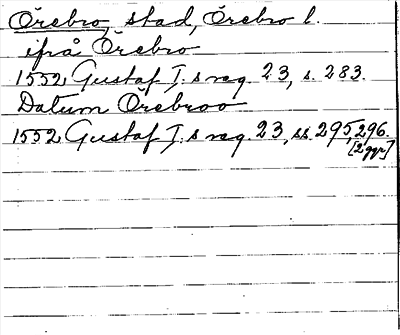 Örebro, stad, Örebro l.
ifrå Örebro
1552 Gustaf I:s reg. 23, s. 283.
Datum Örebroo
1552 Gustaf I:s reg. 23, ss. 295, 296.
[2 ggr]